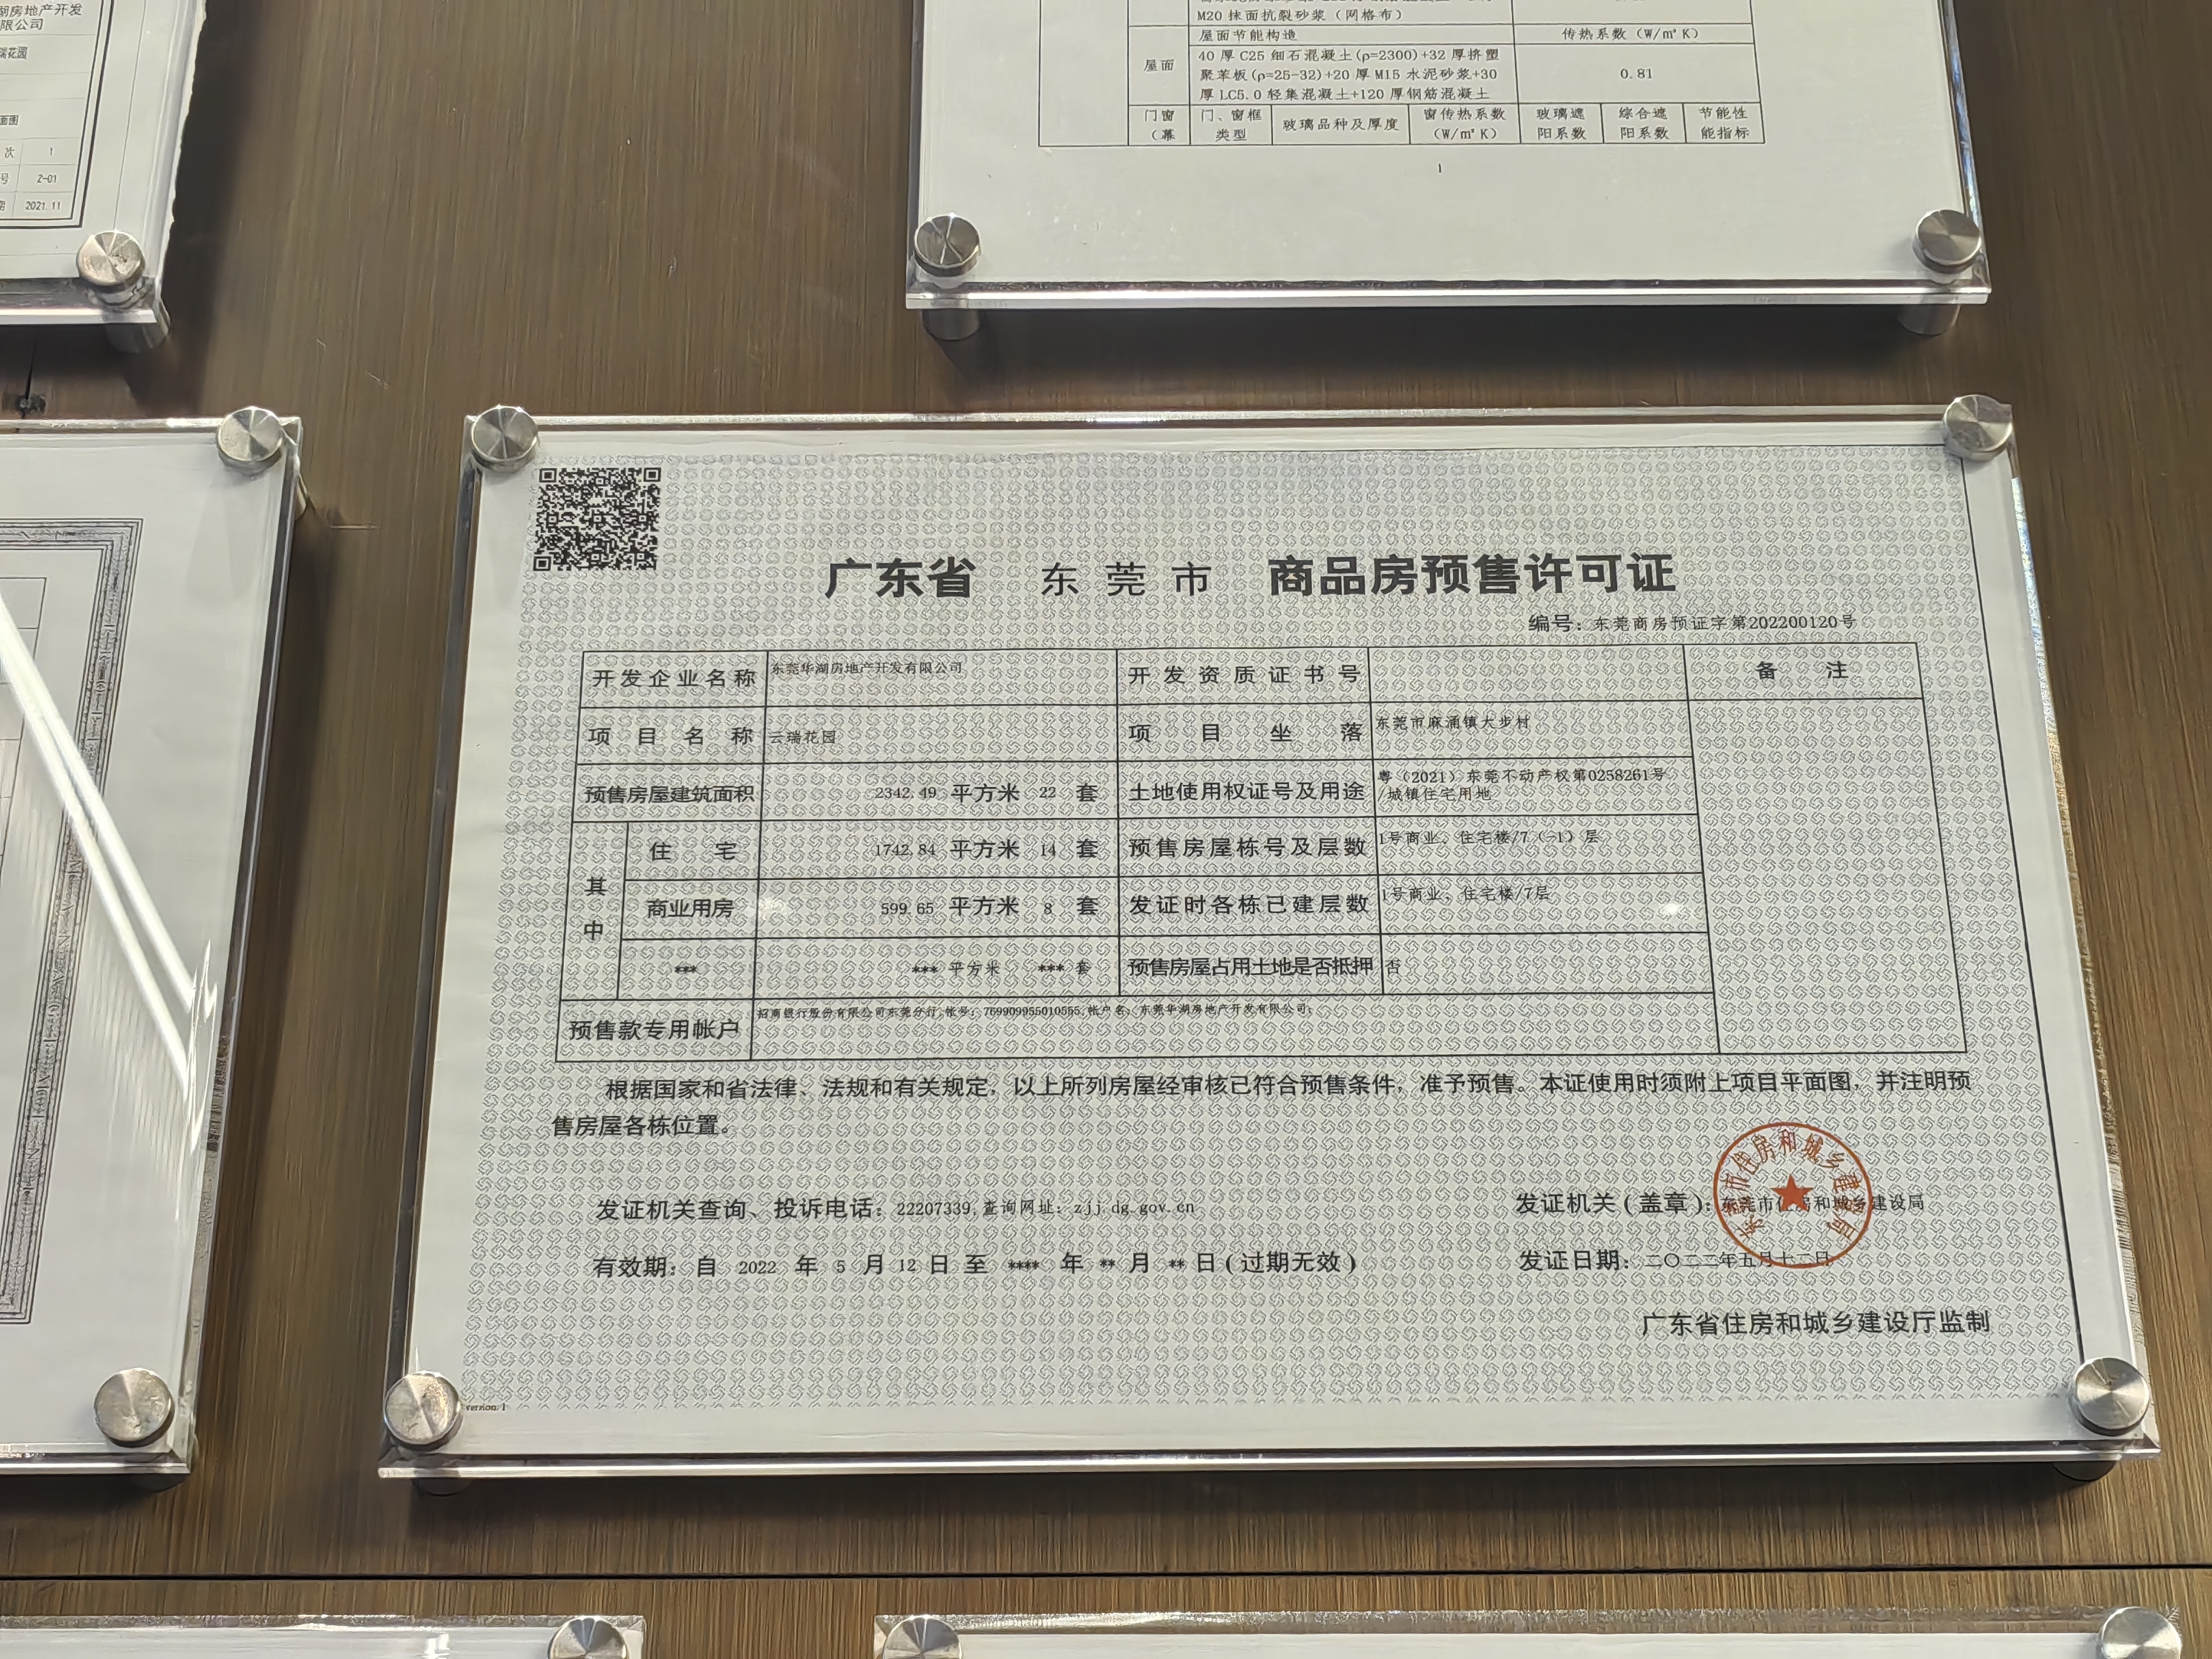 湖房地产开发
限公司
瑞花园
面图
次 1
号 2-01
期 2021.11
M20 抹面抗裂砂浆（网格布）
屋面节能构造 传热系数（W/㎡K）
屋面
40 厚 C25 细石混凝土(ρ=2300)+32 厚挤塑
聚苯板(ρ=25-32)+20 厚 M15 水泥砂浆+30
厚 LC5.0 轻集混凝土+120 厚钢筋混凝土
0.81
门窗 门、窗框 玻璃品种及厚度 窗传热系数 玻璃遮 综合遮 节能性
（幕 类型 （W/㎡K） 阳系数 阳系数 能指标
1
广东省 东莞市 商品房预售许可证
编号：东莞商房预证字第202200120号
开发企业名称 东莞华湖房地产开发有限公司 开发资质证书号 备注
项目名称 云瑞花园 项目坐落 东莞市麻涌镇大步村
预售房屋建筑面积 2342.49 平方米 22 套 土地使用权证号及用途 粤（2021）东莞不动产权第0258261号
/城镇住宅用地
其中
住宅 1742.84 平方米 14 套 预售房屋栋号及层数 1号商业、住宅楼/7（-1）层
商业用房 599.65 平方米 8 套 发证时各栋已建层数 1号商业、住宅楼/7层
*** *** 平方米 *** 套 预售房屋占用土地是否抵押 否
预售款专用帐户 招商银行股份有限公司东莞分行,帐号：769909955010555,帐户名：东莞华湖房地产开发有限公司;
根据国家和省法律、法规和有关规定，以上所列房屋经审核已符合预售条件，准予预售。本证使用时须附上项目平面图，并注明预
售房屋各栋位置。
发证机关查询、投诉电话：22207339,查询网址：zjj.dg.gov.cn 发证机关（盖章）：东莞市住房和城乡建设局
东莞市住房和城乡建设局
有效期：自 2022 年 5 月 12 日至 **** 年 ** 月 ** 日（过期无效） 发证日期：二〇二二年五月十二日
广东省住房和城乡建设厅监制
version:1